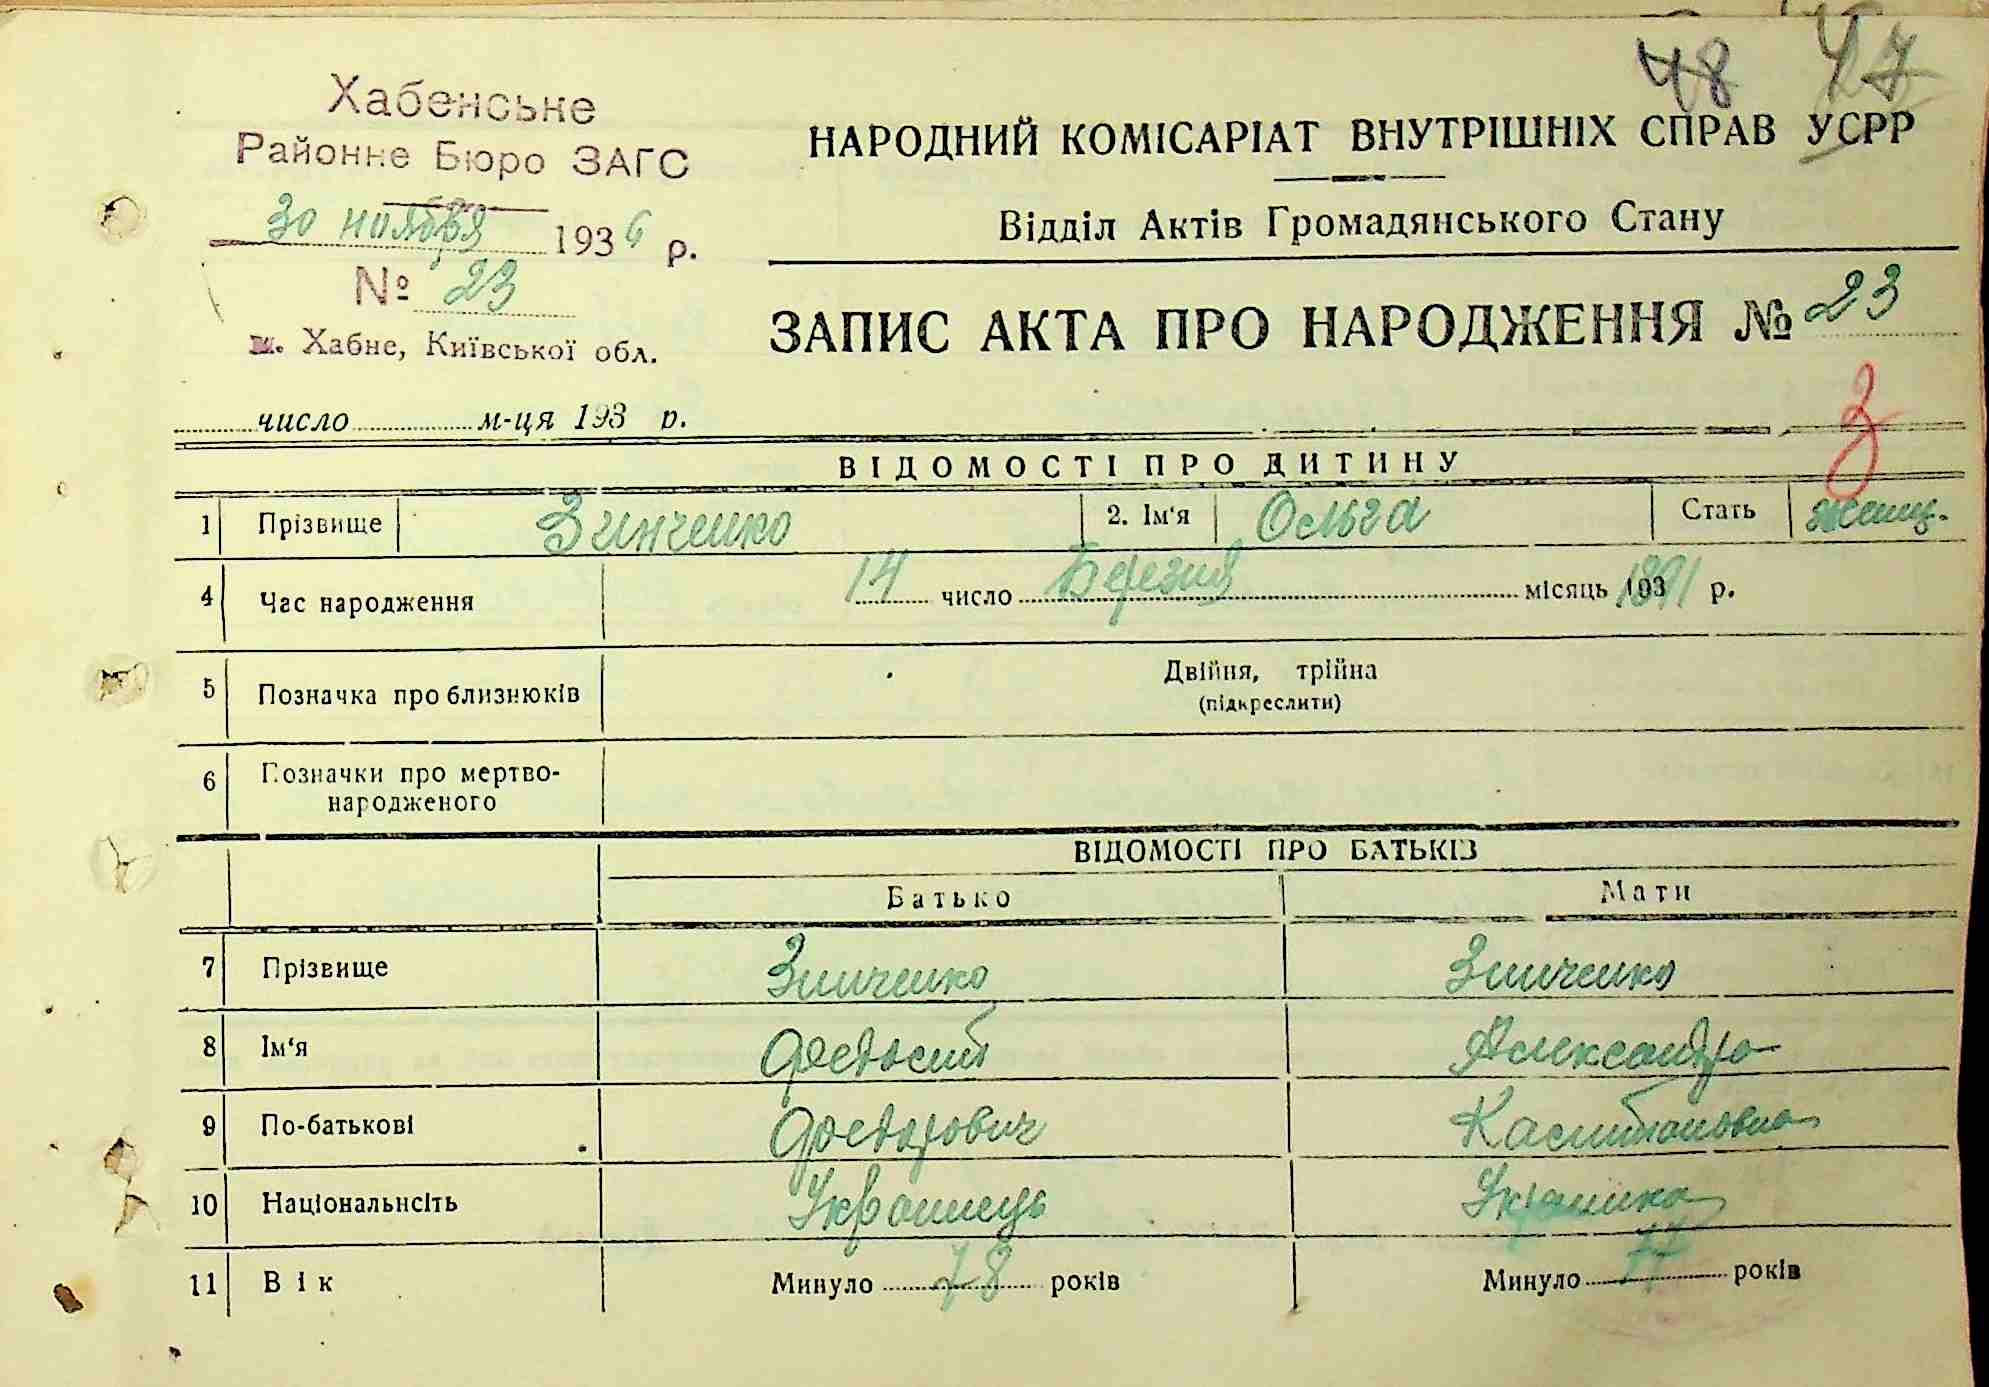 48 47
Хабенське
Районне Бюро ЗАГС
30 ноября 1936 р.
№ 23
м. Хабне, Київської обл.
НАРОДНИЙ КОМІСАРІАТ ВНУТРІШНІХ СПРАВ УСРР
Відділ Актів Громадянського Стану
ЗАПИС АКТА ПРО НАРОДЖЕННЯ № 23
число м-ця 193 р.
З
ВІДОМОСТІ ПРО ДИТИНУ
1 Прізвище Зинченко 2. Ім'я Ольга Стать женщ.
4 Час народження 14 число Березня місяць 1891 р.
5 Позначка про близнюків Двійня, трійня
(підкреслити)
6 Позначки про мертво-
народженого
ВІДОМОСТІ ПРО БАТЬКІВ
Батько Мати
7 Прізвище Зинченко Зинченко
8 Ім'я Федосий Александра
9 По-батькові Федорович Касияновна
10 Національнсіть Українець Українка
11 Вік Минуло 78 років Минуло 77 років